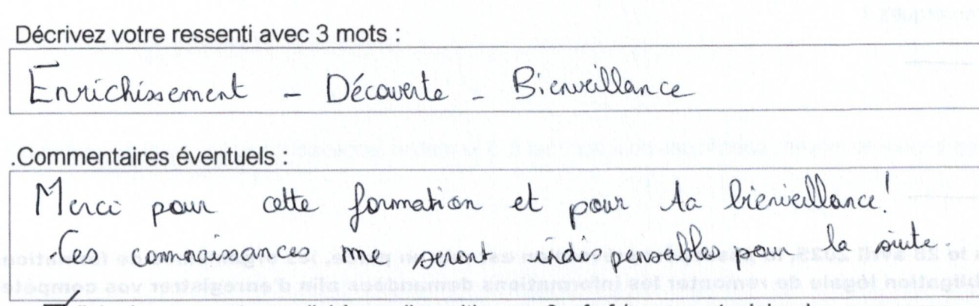 Décrivez votre ressenti avec 3 mots :
Enrichissement - Découverte - Bienveillance
.Commentaires éventuels :
Merci pour cette formation et pour ta bienveillance !
Ces connaissances me seront indispensables pour la suite.